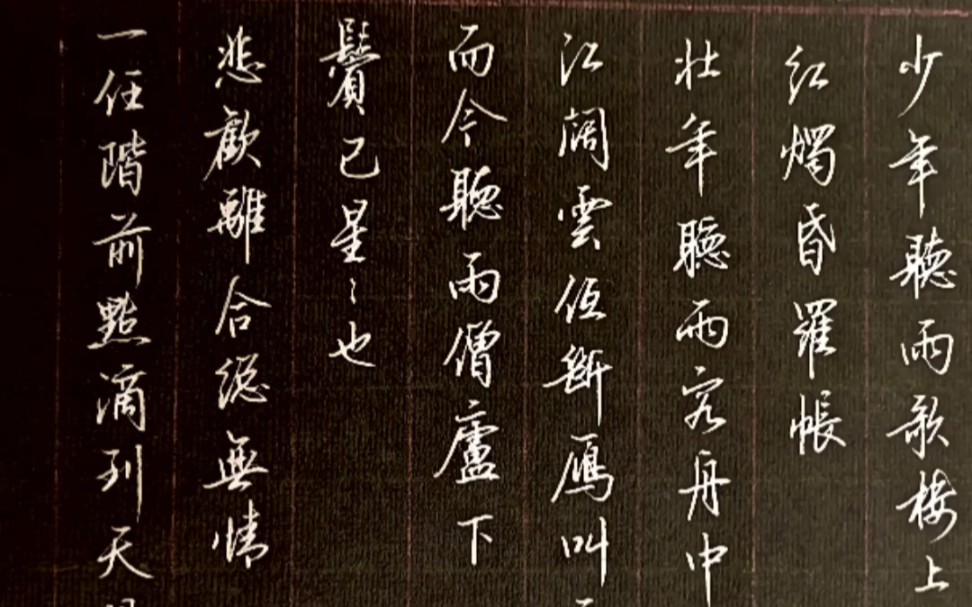 少年聽雨歌樓上
紅燭昏羅帳
壯年聽雨客舟中
江闊雲低斷雁叫
而今聽雨僧廬下
鬢已星〻也
悲歡離合總無情
一任階前點滴到天